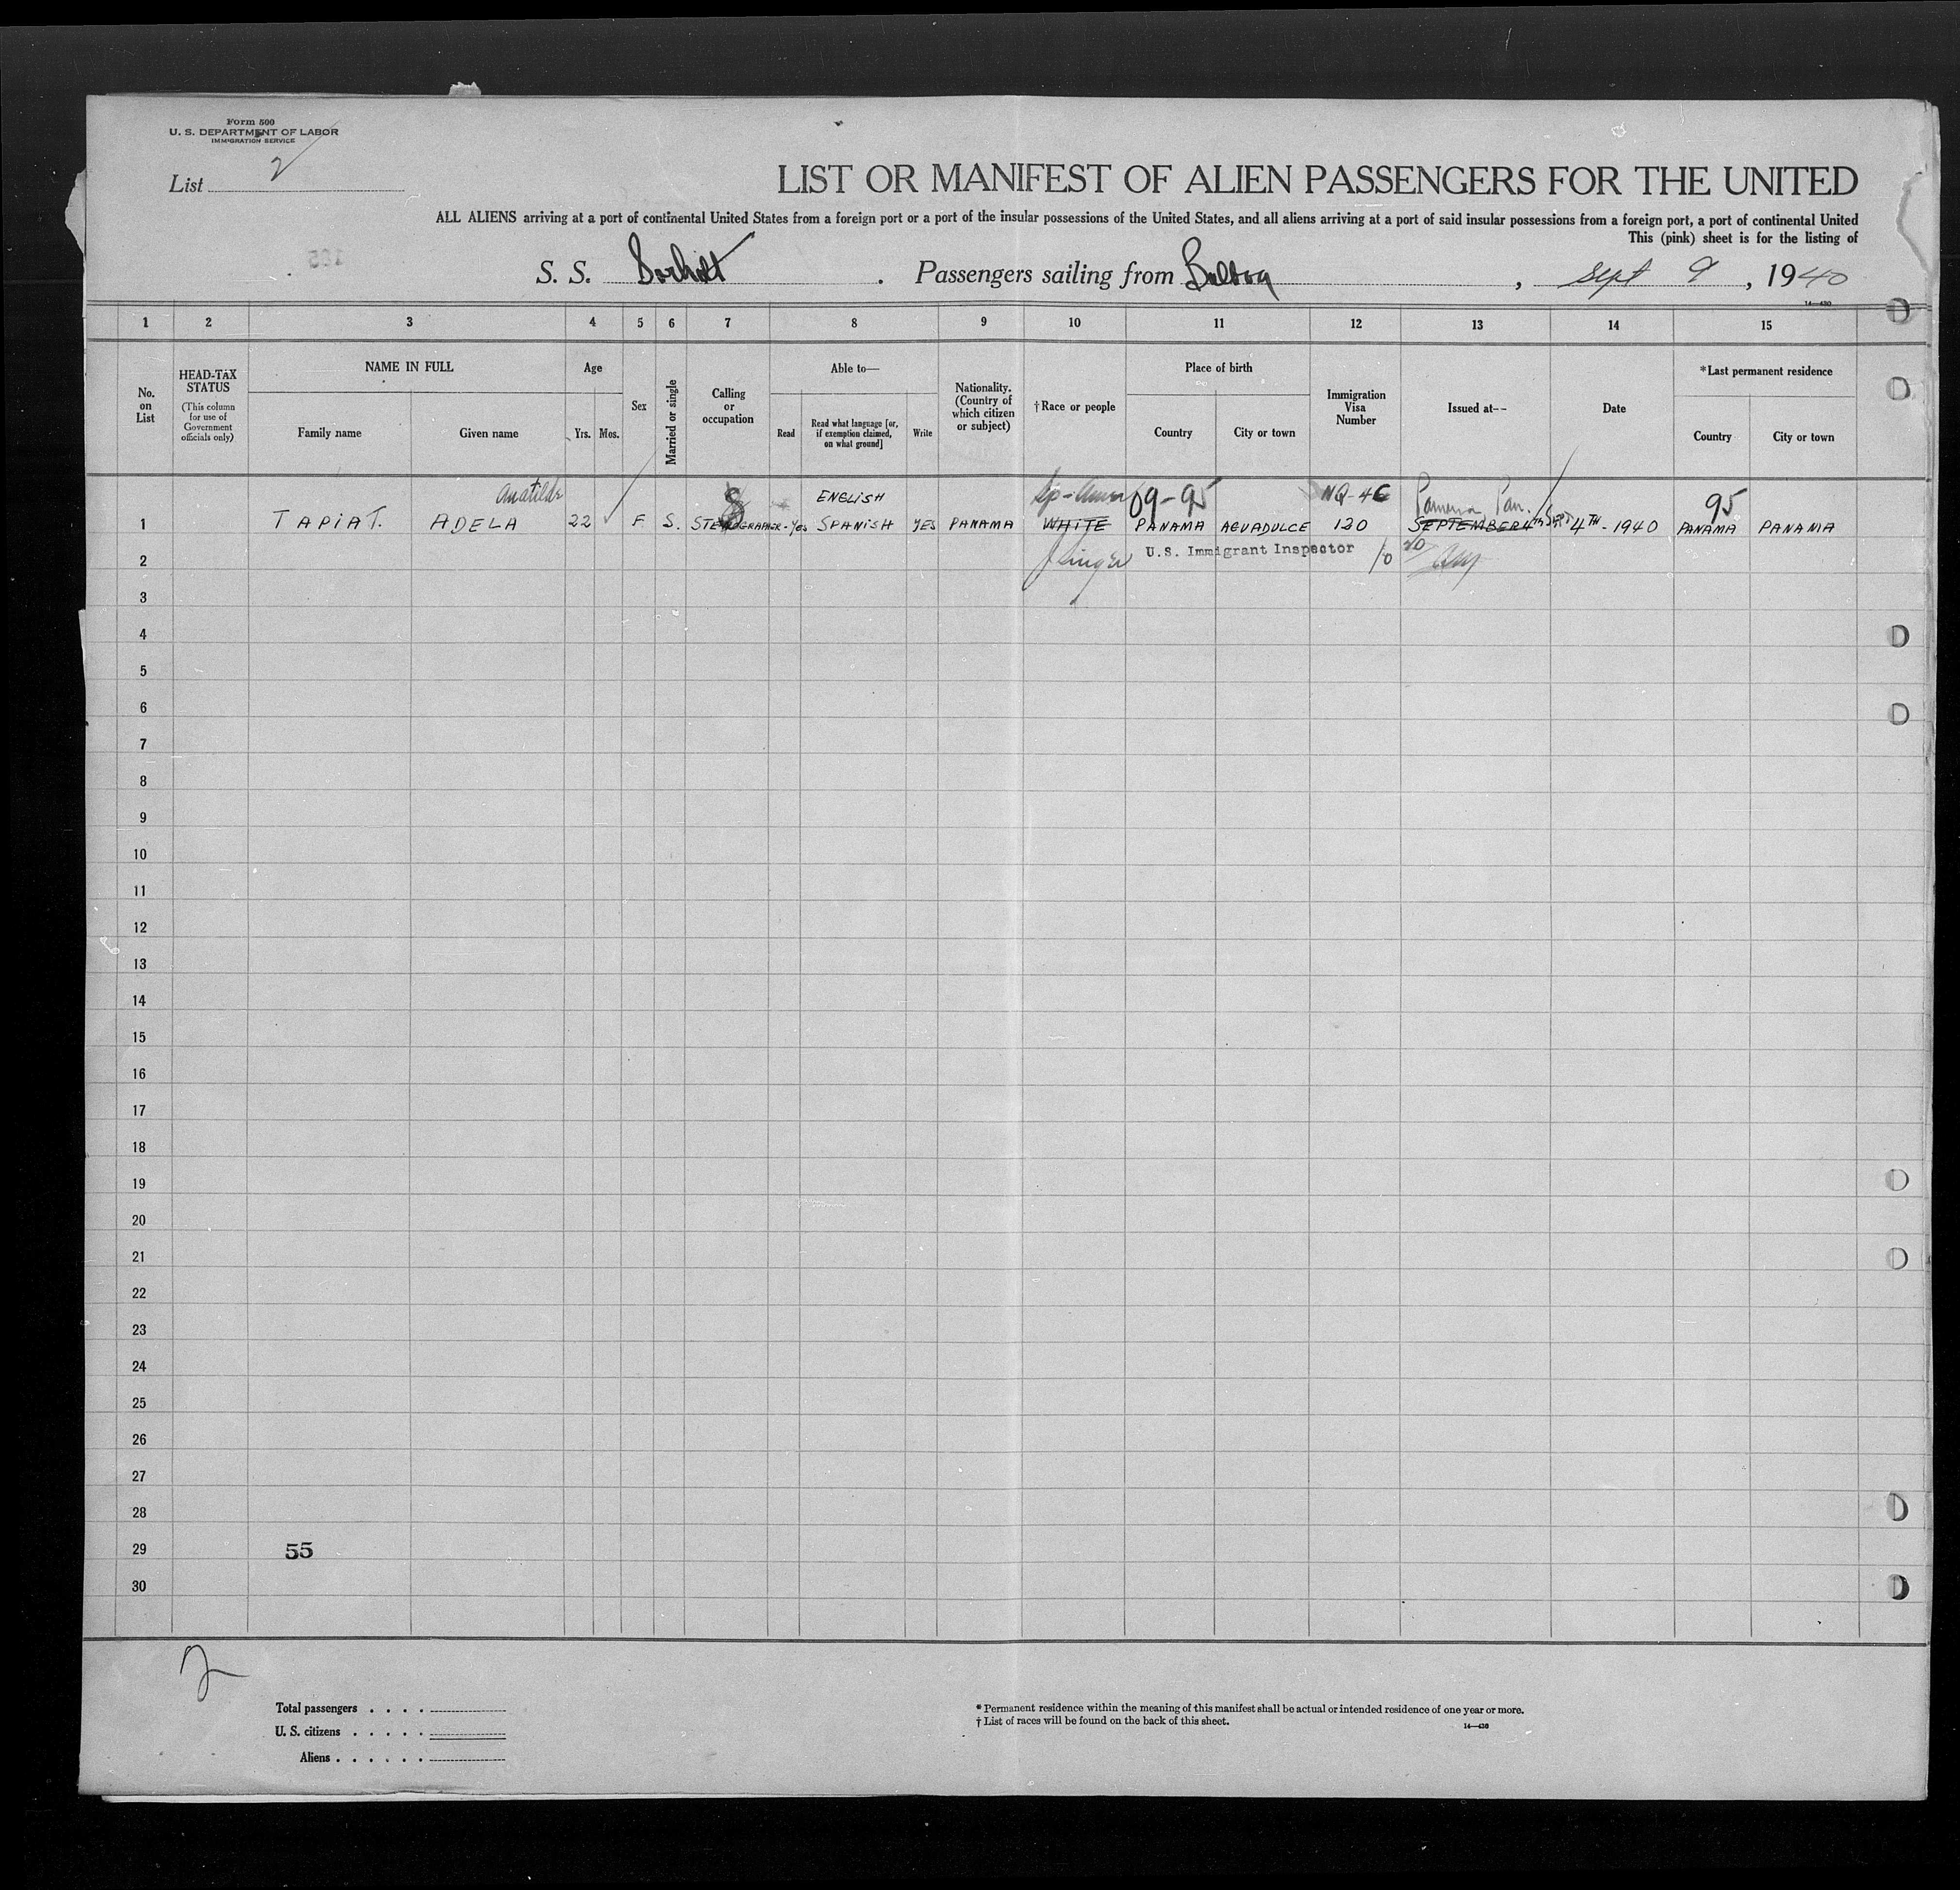 Form 500
U. S. DEPARTMENT OF LABOR
IMMIGRATION SERVICE
List 2
LIST OR MANIFEST OF ALIEN PASSENGERS FOR THE UNITED
ALL ALIENS arriving at a port of continental United States from a foreign port or a port of the insular possessions of the United States, and all aliens arriving at a port of said insular possessions from a foreign port, a port of continental United
This (pink) sheet is for the listing of
185
S. S. . Passengers sailing from Balboa , Sept 9 , 1940
14—430
1 2 3 4 5 6 7 8 9 10 11 12 13 14 15
No. on List
HEAD-TAX STATUS
(This column for use of Government officials only)
NAME IN FULL
Family name
Given name
Age
Yrs. Mos.
Sex
Married or single
Calling or occupation
Able to—
Read
Read what language [or, if exemption claimed, on what ground]
Write
Nationality. (Country of which citizen or subject)
† Race or people
Place of birth
Country
City or town
Immigration Visa Number
Issued at--
Date
*Last permanent residence
Country
City or town
Anatilde 8 ENGLISH Sp-Amer 09-95 NQ-4C Panama, Pan. 95
1 TAPIA T. ADELA 22 F. S. STENOGRAPHER- Yes SPANISH YES PANAMA WHITE PANAMA AGUADULCE 120 SEPTEMBER 4th Sept 4TH - 1940 PANAMA PANAMA
2 U.S. Immigrant Inspector
3
4
5
6
7
8
9
10
11
12
13
14
15
16
17
18
19
20
21
22
23
24
25
26
27
28
29 55
30
2
Total passengers . . . .
U. S. citizens . . . . .
Aliens . . . . . .
* Permanent residence within the meaning of this manifest shall be actual or intended residence of one year or more.
† List of races will be found on the back of this sheet.
14—430